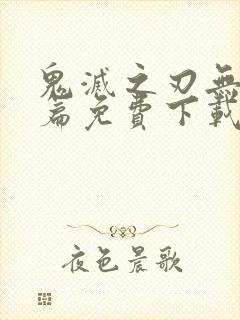 鬼滅之刃無
篇免費下載
夜色晨歌